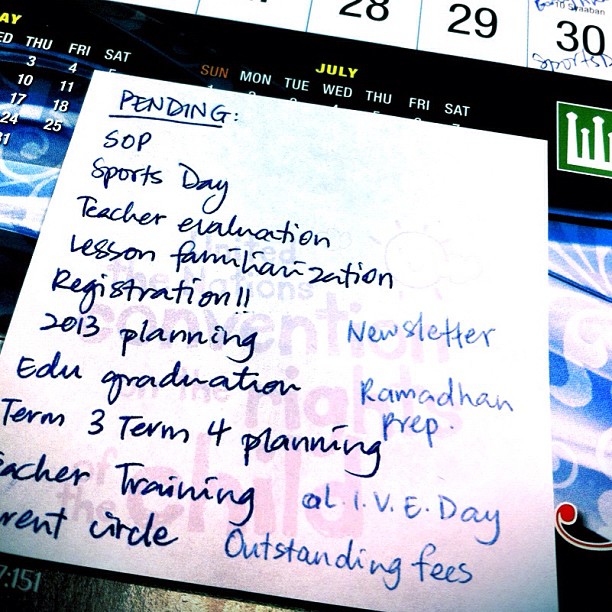 28 29 30
Sports D
AY
ED THU FRI SAT
3 4
10 11
17 18
24 25
31
JULY
SUN MON TUE WED THU FRI SAT
PENDING:
SOP
Sports Day
Teacher evaluation
Lesson familiarization
Registration!!
2013 planning
Newsletter
Edu graduation
Ramadhan
prep.
Term 3 Term 4 planning
eacher Training
@L.I.V.E. Day
rent circle
Outstanding fees
United
the Nations
convention
on the rights
of the child
7:151